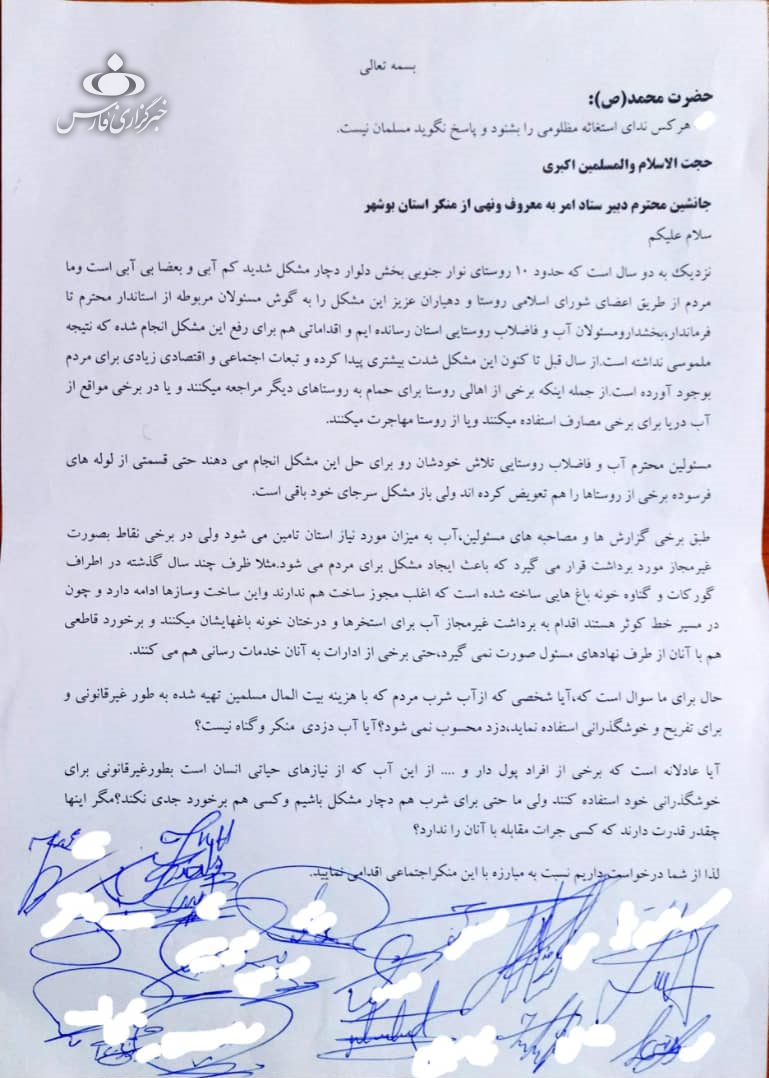 بسمه تعالی
خبرگزاری فارس
حضرت محمد(ص):
هرکس ندای استغاثه مظلومی را بشنود و پاسخ نگوید مسلمان نیست.
حجت الاسلام والمسلمین اکبری
جانشین محترم دبیر ستاد امر به معروف ونهی از منکر استان بوشهر
سلام علیکم
نزدیک به دو سال است که حدود ۱۰ روستای نوار جنوبی بخش دلوار دچار مشکل شدید کم آبی و بعضا بی آبی است وما
مردم از طریق اعضای شورای اسلامی روستا و دهیاران عزیز این مشکل را به گوش مسئولان مربوطه از استاندار محترم تا
فرماندار،بخشدارومسئولان آب و فاضلاب روستایی استان رسانده ایم و اقداماتی هم برای رفع این مشکل انجام شده که نتیجه
ملموسی نداشته است.از سال قبل تا کنون این مشکل شدت بیشتری پیدا کرده و تبعات اجتماعی و اقتصادی زیادی برای مردم
بوجود آورده است.از جمله اینکه برخی از اهالی روستا برای حمام به روستاهای دیگر مراجعه میکنند و یا در برخی مواقع از
آب دریا برای برخی مصارف استفاده میکنند ویا از روستا مهاجرت میکنند.
مسئولین محترم آب و فاضلاب روستایی تلاش خودشان رو برای حل این مشکل انجام می دهند حتی قسمتی از لوله های
فرسوده برخی از روستاها را هم تعویض کرده اند ولی باز مشکل سرجای خود باقی است.
طبق برخی گزارش ها و مصاحبه های مسئولین،آب به میزان مورد نیاز استان تامین می شود ولی در برخی نقاط بصورت
غیرمجاز مورد برداشت قرار می گیرد که باعث ایجاد مشکل برای مردم می شود.مثلا ظرف چند سال گذشته در اطراف
گورکات و گناوه خونه باغ هایی ساخته شده است که اغلب مجوز ساخت هم ندارند واین ساخت وسازها ادامه دارد و چون
در مسیر خط کوثر هستند اقدام به برداشت غیرمجاز آب برای استخرها و درختان خونه باغهایشان میکنند و برخورد قاطعی
هم با آنان از طرف نهادهای مسئول صورت نمی گیرد،حتی برخی از ادارات به آنان خدمات رسانی هم می کنند.
حال برای ما سوال است که،آیا شخصی که ازآب شرب مردم که با هزینه بیت المال مسلمین تهیه شده به طور غیرقانونی و
برای تفریح و خوشگذرانی استفاده نماید،دزد محسوب نمی شود؟آیا آب دزدی منکر وگناه نیست؟
آیا عادلانه است که برخی از افراد پول دار و .... از این آب که از نیازهای حیاتی انسان است بطورغیرقانونی برای
خوشگذرانی خود استفاده کنند ولی ما حتی برای شرب هم دچار مشکل باشیم وکسی هم برخورد جدی نکند؟مگر اینها
چقدر قدرت دارند که کسی جرات مقابله با آنان را ندارد؟
لذا از شما درخواست داریم نسبت به مبارزه با این منکراجتماعی اقدامی نمایید.